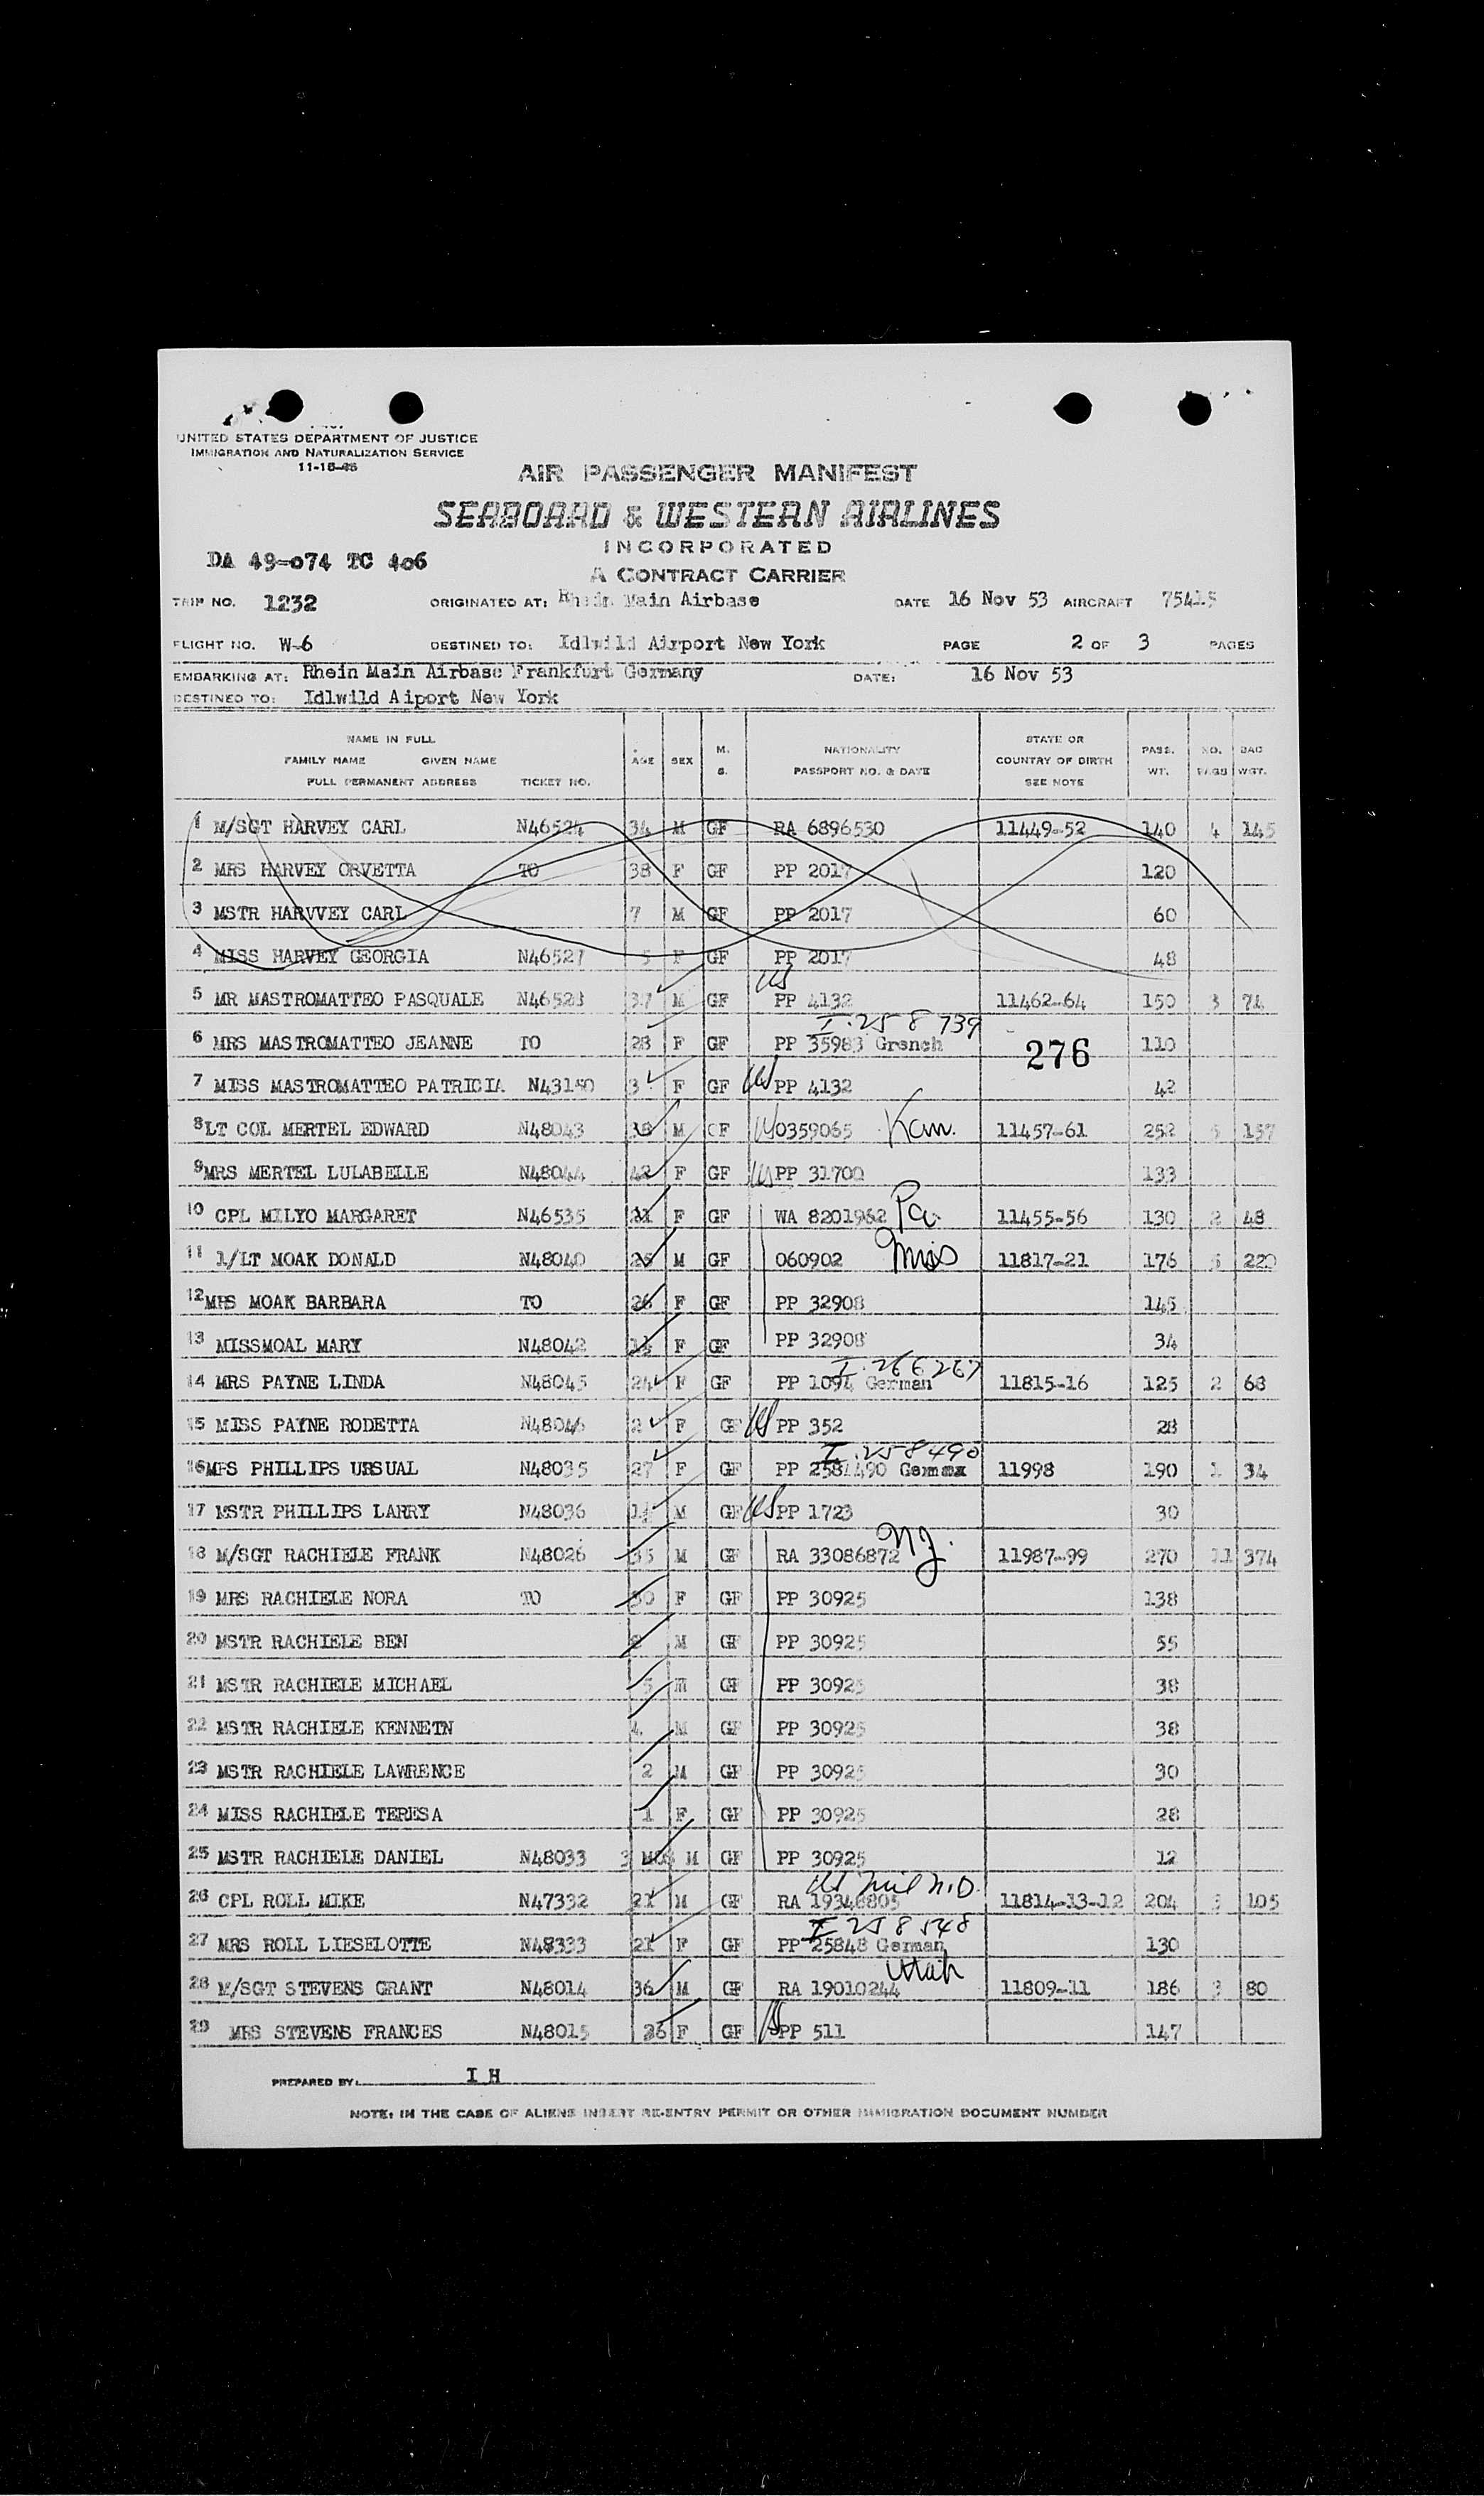 UNITED STATES DEPARTMENT OF JUSTICE
IMMIGRATION AND NATURALIZATION SERVICE
AIR PASSENGER MANIFEST
SEABOARD & WESTERN AIRLINES
INCORPORATED
DA 49-074 TC 406
A CONTRACT CARRIER
TRIP NO. 1232 ORIGINATED AT: Rhein Main Airbase DATE 16 Nov 53 AIRCRAFT 75415
FLIGHT NO. W-6 DESTINED TO: Idlwild Airport New York PAGE 2 OF 3 PAGES
EMBARKING AT: Rhein Main Airbase Frankfurt Germany DATE: 16 Nov 53
DESTINED TO: Idlwild Aiport New York
NAME IN FULL
FAMILY NAME GIVEN NAME
FULL PERMANENT ADDRESS TICKET NO.
AGE SEX M. S.
NATIONALITY
PASSPORT NO. & DATE
STATE OR
COUNTRY OF BIRTH
SEE NOTE
PASS. WT. NO. BAGS BAG WGT.
1 M/SGT HARVEY CARL N46524 34 M GF RA 6896530 11449-52 140 4 145
2 MRS HARVEY ORVETTA TO 38 F GF PP 2017 120
3 MSTR HARVVEY CARL 7 M GF PP 2017 60
4 MISS HARVEY GEORGIA N46527 5 F GF PP 2017 48
5 MR MASTROMATTEO PASQUALE N46528 37 M GF US PP 4132 11462-64 150 3 74
I.258739
6 MRS MASTROMATTEO JEANNE TO 28 F GF PP 35983 Grench 276 110
7 MISS MASTROMATTEO PATRICIA N43150 3 F GF US PP 4132 42
8 LT COL MERTEL EDWARD N48043 M GF US 0359065 Kan. 11457-61 252 5 157
9 MRS MERTEL LULABELLE N48044 42 F GF US PP 31700 133
10 CPL MILYO MARGARET N46535 F GF WA 8201962 Pa. 11455-56 130 2 48
11 1/LT MOAK DONALD N48040 M GF 060902 Miss 11817-21 176 5 220
12 MRS MOAK BARBARA TO 26 F GF PP 32908 145
13 MISSMOAL MARY N48042 F GF PP 32908 34
I.266267
14 MRS PAYNE LINDA N48045 24 F GF PP 1094 German 11815-16 125 2 68
15 MISS PAYNE RODETTA N48046 2 F GF US PP 352 28
I.258490
16 MRS PHILLIPS URSUAL N48035 27 F GF PP 2581490 11998 190 1 34
17 MSTR PHILLIPS LARRY N48036 M GF US PP 1723 30
18 M/SGT RACHIELE FRANK N48026 35 M GF RA 33086872 N.J. 11987-99 270 11 374
19 MRS RACHIELE NORA TO 30 F GF PP 30925 138
20 MSTR RACHIELE BEN M GF PP 30925 55
21 MSTR RACHIELE MICHAEL 5 m GF PP 30925 38
22 MSTR RACHIELE KENNETN 4 M GF PP 30925 38
23 MSTR RACHIELE LAWRENCE 2 M GF PP 30925 30
24 MISS RACHIELE TERESA 1 F GF PP 30925 28
25 MSTR RACHIELE DANIEL N48033 3 MOS M GF PP 30925 12
US Mil N.D.
26 CPL ROLL MIKE N47332 21 M GF RA 19346805 11814-13-12 204 5 105
I 258548
27 MRS ROLL LIESELOTTE N48333 21 F GF PP 25848 German 130
Utah
28 M/SGT STEVENS GRANT N48014 36 M GF RA 19010244 11809-11 186 3 80
29 MRS STEVENS FRANCES N48015 26 F GF US PP 511 147
PREPARED BY: I H
NOTE: IN THE CASE OF ALIENS INSERT RE-ENTRY PERMIT OR OTHER IMMIGRATION DOCUMENT NUMBER